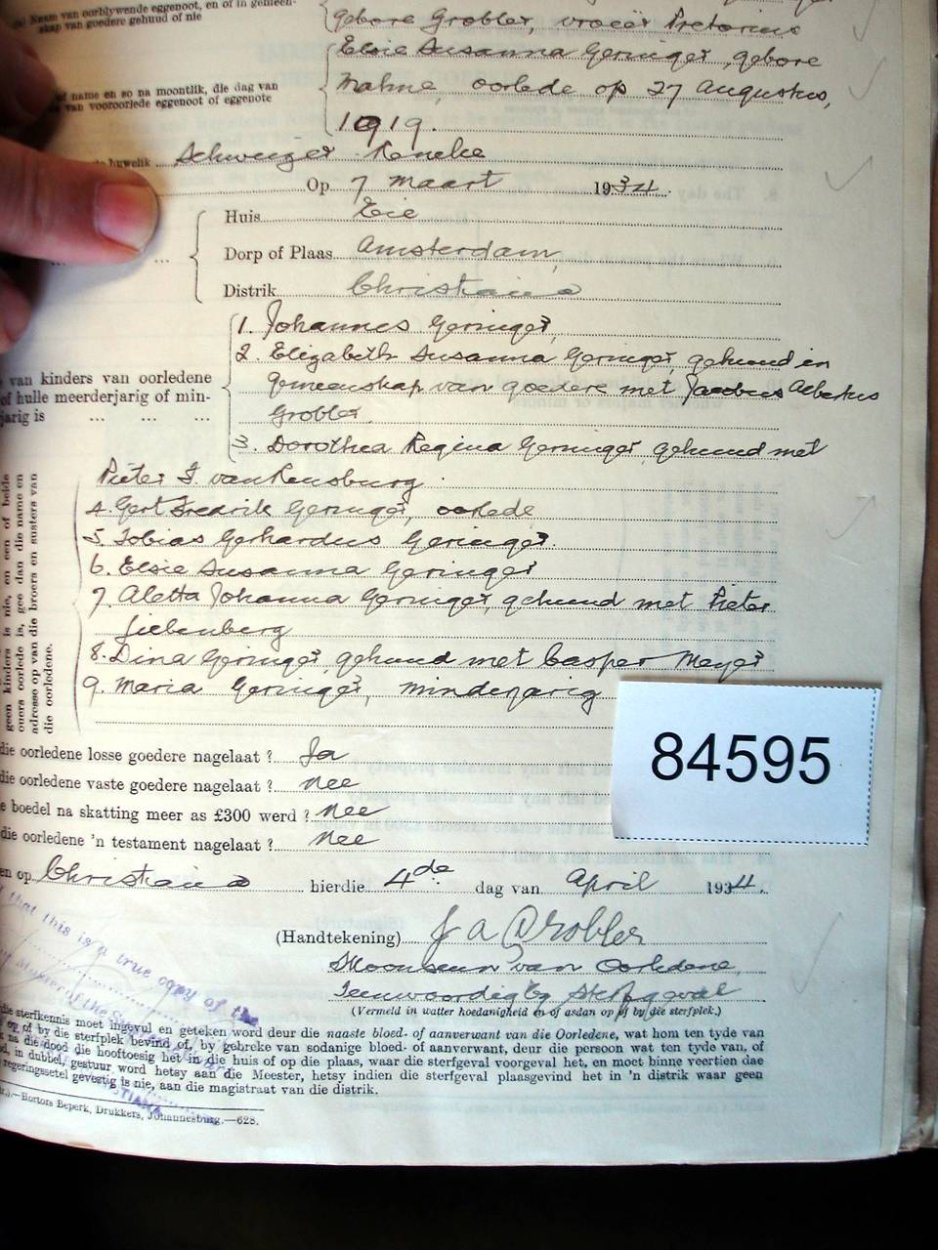 (a) Naam van oorblywende eggenoot, en of in gemeen-
skap van goedere gehuud of nie
gebore Grobler, vroeër Pretorius
Elsie Susanna Geringer, gebore
name en so na moontlik, die dag van
van vooroorlede eggenoot of eggenote
oorlede op 27 Augustus,
1919.
huwelik Schweizer Reneke
Op 7 Maart 1934.
Huis Eie
Dorp of Plaas Amsterdam,
Distrik Christiana
1. Johannes Geringer,
2. Elizabeth Susanna Geringer, gehuud in
van kinders van oorledene
of hulle meerderjarig of min-
jarig is ... ... ...
gemeenskap van goedere met Jacobus Albertus
Grobler
3. Dorothea Regina Geringer gehuud met
Pieter J. van Rensburg
4. Gert Fredrik Geringer, oorlede
5. Tobias Gerhardus Geringer.
6. Elsie Susanna Geringer
7. Aletta Johanna Geringer, gehuud met Pieter
8. Dina Geringer gehuud met Casper Meyer
9. Maria Geringer, minderjarig
geen kinders is nie, en een of beide
ouers oorlede is, gee dan die name en
adresse op van die broers en susters van
die oorledene.
84595
die oorledene losse goedere nagelaat ? Ja
die oorledene vaste goedere nagelaat ? Nee
e boedel na skatting meer as £300 werd ? Nee
die oorledene 'n testament nagelaat ? Nee
en op Christiana hierdie 4de dag van April 1934.
(Handtekening) J A Grobler
Skoonseun van Oorledene,
Teenwoordig by Sterfgeval
(Vermeld in watter hoedanigheid en of asdan op of by die sterfplek.)
that this is a true copy of the
die sterfkennis moet ingevul en geteken word deur die naaste bloed- of aanverwant van die Oorledene, wat hom ten tyde van
op of by die sterfplek bevind of, by gebreke van sodanige bloed- of aanverwant, deur die persoon wat ten tyde van, of
na die dood die hooftoesig het in die huis of op die plaas, waar die sterfgeval voorgeval het, en moet binne veertien dae
d, in dubbel, gestuur word hetsy aan die Meester, hetsy indien die sterfgeval plaasgevind het in 'n distrik waar geen
regeringsetel gevestig is nie, aan die magistraat van die distrik.
TIANA
Hortors Beperk, Drukkers, Johannesburg.—628.